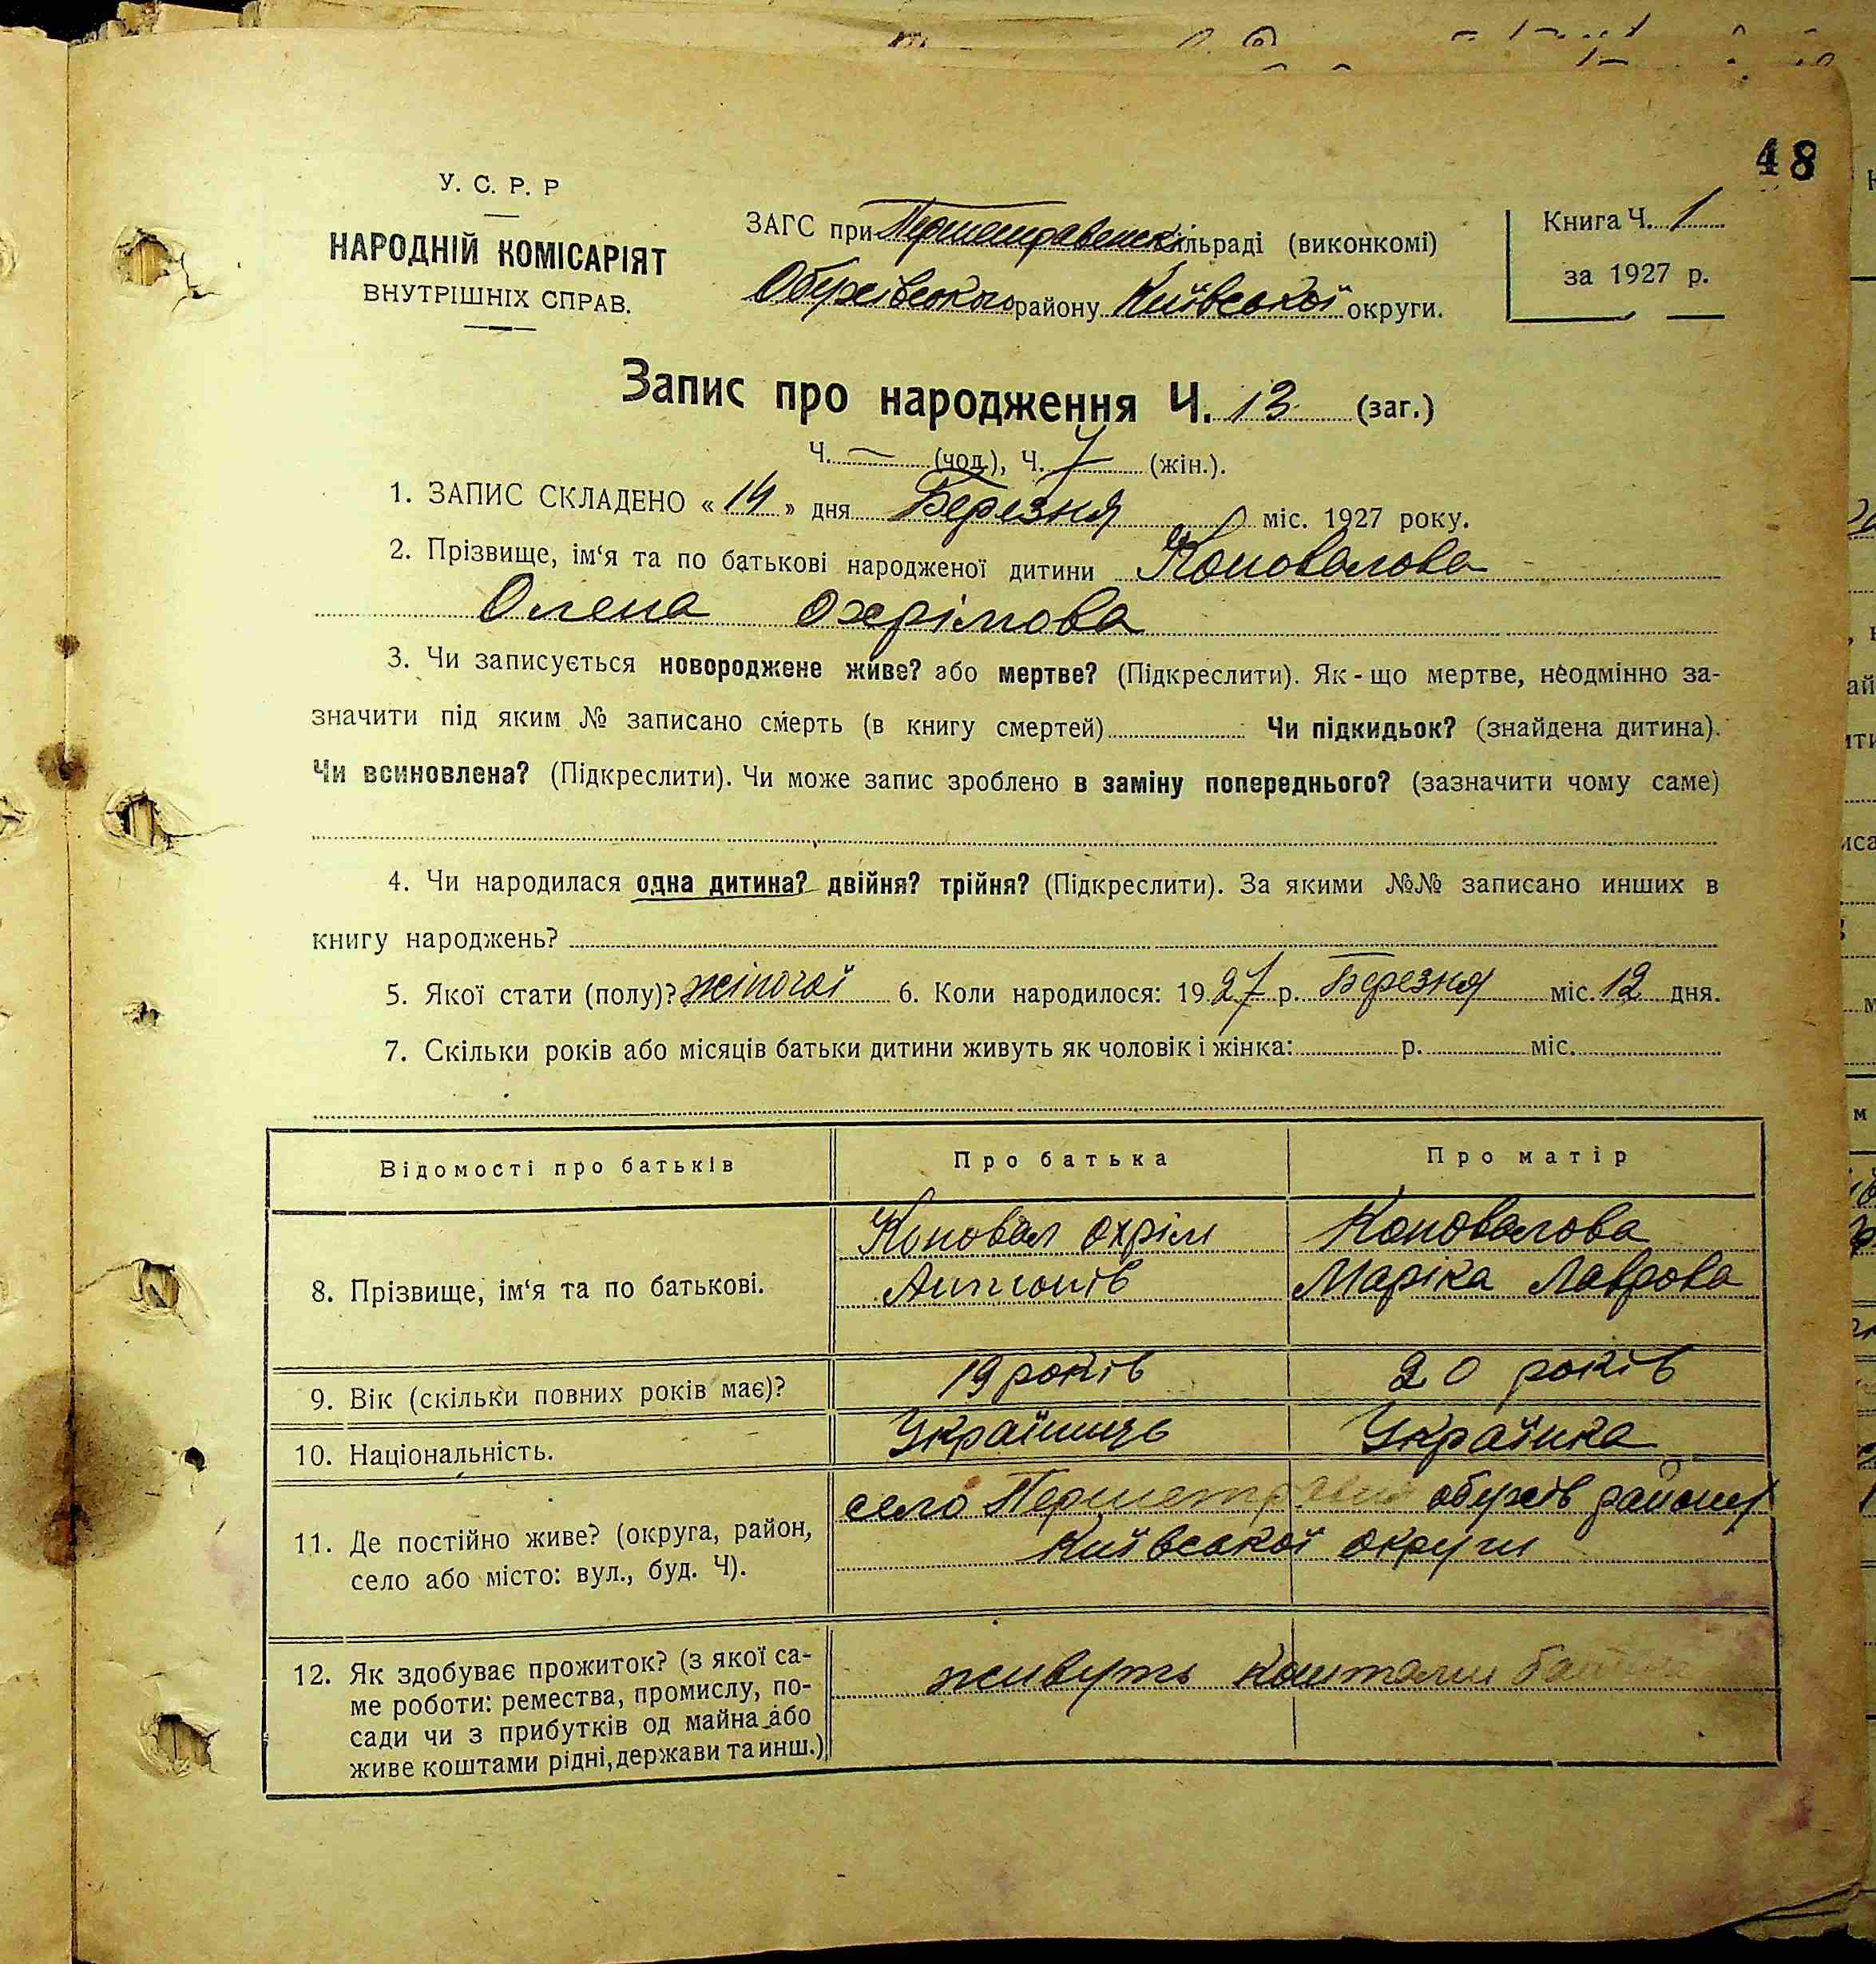 48
У. С. Р. Р
НАРОДНІЙ КОМІСАРІЯТ
ВНУТРІШНІХ СПРАВ.
ЗАГС при Першетравенскі сільраді (виконкомі)
Обухівського району Київської округи.
Книга Ч. 1
за 1927 р.
Запис про народження Ч. 13 (заг.)
Ч. — (чол.), Ч. 7 (жін.).
1. ЗАПИС СКЛАДЕНО « 14 » дня Березня міс. 1927 року.
2. Прізвище, ім‘я та по батькові народженої дитини Коновалова
Олена Охрімова
3. Чи записується новороджене живе? або мертве? (Підкреслити). Як-що мертве, неодмінно за-
значити під яким № записано смерть (в книгу смертей) Чи підкидьок? (знайдена дитина).
Чи всиновлена? (Підкреслити). Чи може запис зроблено в заміну попереднього? (зазначити чому саме)
4. Чи народилася одна дитина? двійня? трійня? (Підкреслити). За якими №№ записано инших в
книгу народжень?
5. Якої стати (полу)? жіночої 6. Коли народилося: 1927 р. Березня міс. 12 дня.
7. Скільки років або місяців батьки дитини живуть як чоловік і жінка: р. міс.
Відомості про батьків Про батька Про матір
8. Прізвище, ім‘я та по батькові. Коновал Охрім Коновалова
Антонів Маріка Лаврова
9. Вік (скільки повних років має)? 19 років 20 років
10. Національність. Українець Українка
11. Де постійно живе? (округа, район, село обухів району
село або місто: вул., буд. Ч). Київської округи
12. Як здобуває прожиток? (з якої са- живуть коштами
ме роботи: ремества, промислу, по-
сади чи з прибутків од майна або
живе коштами рідні, держави та инш.)